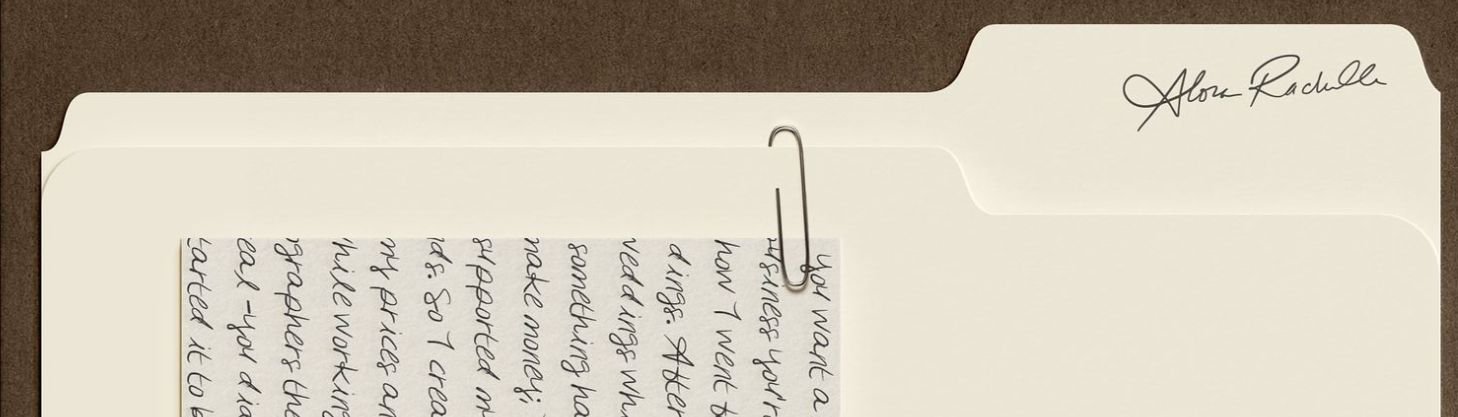 Alora Rachelle
you want a
usiness you'r
how I went
dings. After
weddings wh
something ha
make money;
supported m
ds. So I crea
my prices an
hile working
graphers the
eal - you dia
tarted it to b